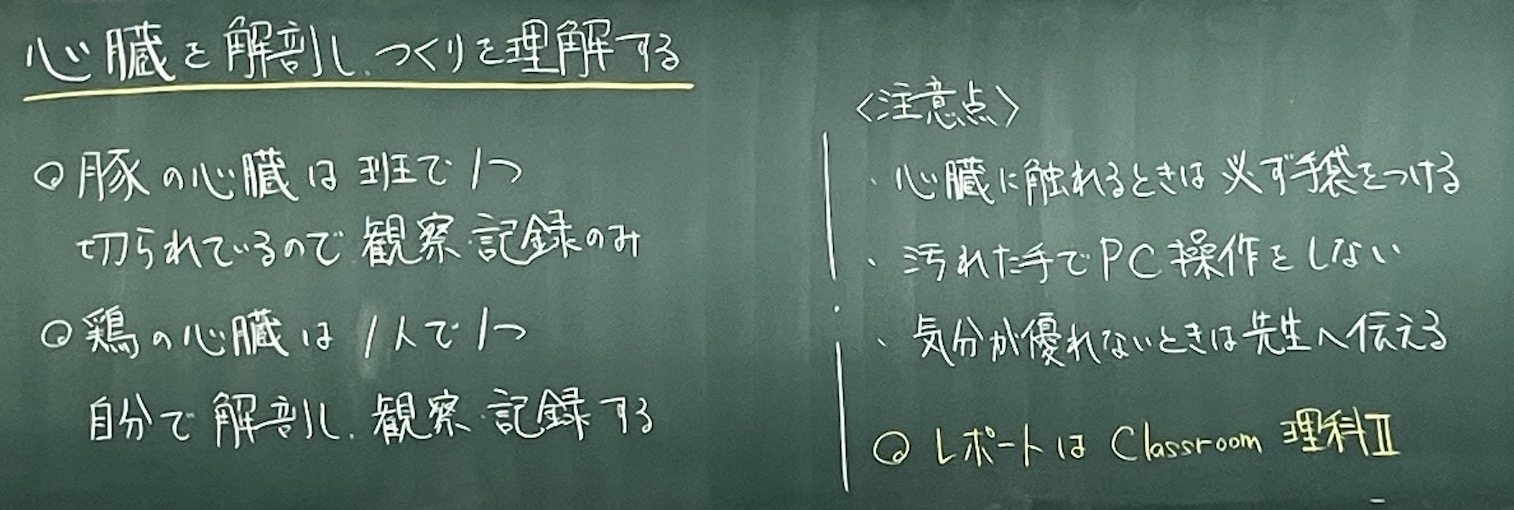 心臓を解剖し、つくりを理解する
○豚の心臓は班で1つ
切られているので観察・記録のみ
○鶏の心臓は1人で1つ
自分で解剖し、観察・記録する
〈注意点〉
・心臓に触れるときは必ず手袋をつける
・汚れた手でPC操作をしない
・気分が優れないときは先生へ伝える
○レポートは Classroom 理科Ⅱ